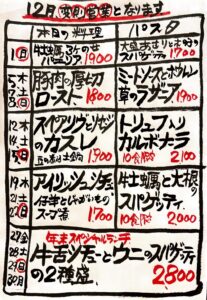 12月変則営業となります
本日の料理
パスタ
1(日)
1900
スパゲッティ 1700
5木
6金
7土
8(日)
豚肉の厚切
ロースト 1800
ミートソースとホウレン
草のラザニア 1900
12木
13金
14土
15(日)
スペアリブとソーセージ
のカスレ
1900
トリュフ入り
カルボナーラ
10食限定 2100
19木
20金
21土
22(日)
アイリッシュシチュー
仔羊とじゃがいもの
スープ煮 1700
牛土蠣と大根の
スパゲッティ
10食限定 2000
27金
28土
29(日)
30月
年末スペシャルランチ
牛舌シチューとウニのスパゲッティ
の2種盛 2800